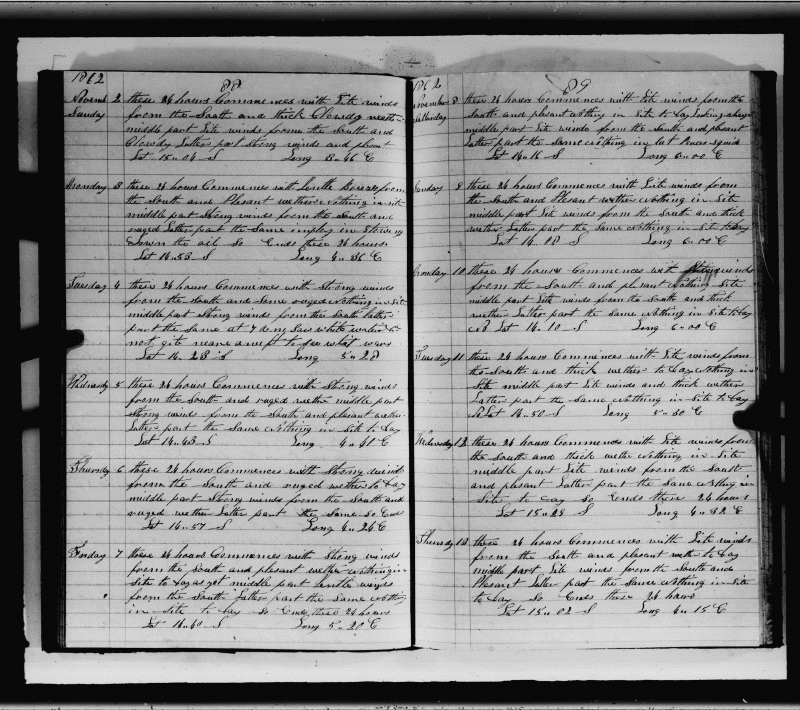 1862
88
Novemb 2 these 24 hours Commences with Lite winds
Sunday from the South and thick Clowdy wether
middle part Lite winds from the South and
Clowdy Latter part Strong winds and plesnt
Lat 15.04 S Long 3.46 E
Monday 3 these 24 hours Commences with Gentle from
the South and Plesant wether Nothing in site
middle part Strong winds from the South and
raged Latter part the Same imploy in Stowing
Down the oil So Ends these 24 hours
Lat 14.53 S Long 4.36 E
Tuesday 4 these 24 hours Commences with Strong winds
from the South and Some raged Nothing in Site
middle part Strong winds from the South latter
part the Same at 7 Saw white water
not gite neare to see what wars
Lat 14.28 S Long 5.28
Wednesdy 5 these 24 hours Commences with Strong winds
from the South and raged wether middle part
Strong winds from the South and plesant wether
Latter part the Same Nothing in Site to Day
Lat 14.43 S Long 4.41 E
Thursday 6 these 24 hours Commences with Strong winds
from the South and raged wether to Day
middle part Strong winds from the South and
raged wether Latter part the Same So Ends
Lat 14.57 S Long 4.24 E
Friday 7 these 24 hours Commences with Strong winds
from the South and plesant wether nothing in
Site to Day as yet middle part Gentle winds
from the South Latter part the Same Nothing
in Site to Day So Ends these 24 hours
Lat 14.40 S Long 5.20 E
1862
89
November 8 these 24 hours Commences with Lite winds from the
Saturday South and plesant nothing in Site to Day
middle part Lite winds from the South and plesant
Latter part the Same nothing in Squid
Lat 14.16 S Long 6.00 E
Sunday 9 these 24 hours Commences with Lite winds from
the South and Plesant wether Nothing in Site
middle part Lite winds from the South and thick
wether Latter part the Same Nothing in Site to Day
Lat 14.18 S Long 6.00 E
Monday 10 these 24 hours Commences with winds
from the South and plesant Nothing Site
middle part Lite winds from the South and thick
wether Latter part the Same Nothing in Site to Day
Lat 14.10 S Long 6.00 E
Tuesday 11 these 24 hours Commences with Lite winds from
the South and thick wether to Day Nothing in
Site middle part Lite winds and thick wether
Latter part the Same Nothing in Site to Day
Lat 14.50 S Long 5.30 E
Wednesday 12 these 24 hours Commences with Lite winds from
the South and thick wether Nothing in Site
middle part Lite winds from the South
and plesant Latter part the Same Nothing in
Site to Day So Ends these 24 hours
Lat 15.28 S Long 4.32 E
Thursday 13 these 24 hours Commences with Lite winds
from the South and plesant wether to Day
middle part Lite winds from the South and
Plesant Latter part the Same Nothing in Site
to Day So Ends these 24 hours
Lat 15.02 S Long 4.15 E